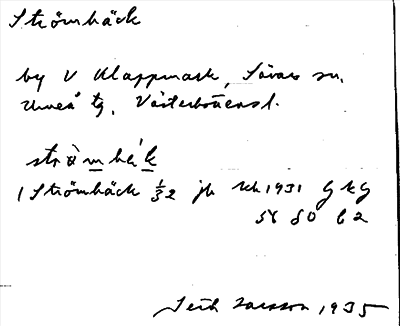 Strömbäck
by V Klappmark, Sävars sn,
Umeå tg, Västerbottens l.
strömbäk
1 Strömbäck 1/32 jb kh 1931 G k G
58 80 62
Larsson 1935